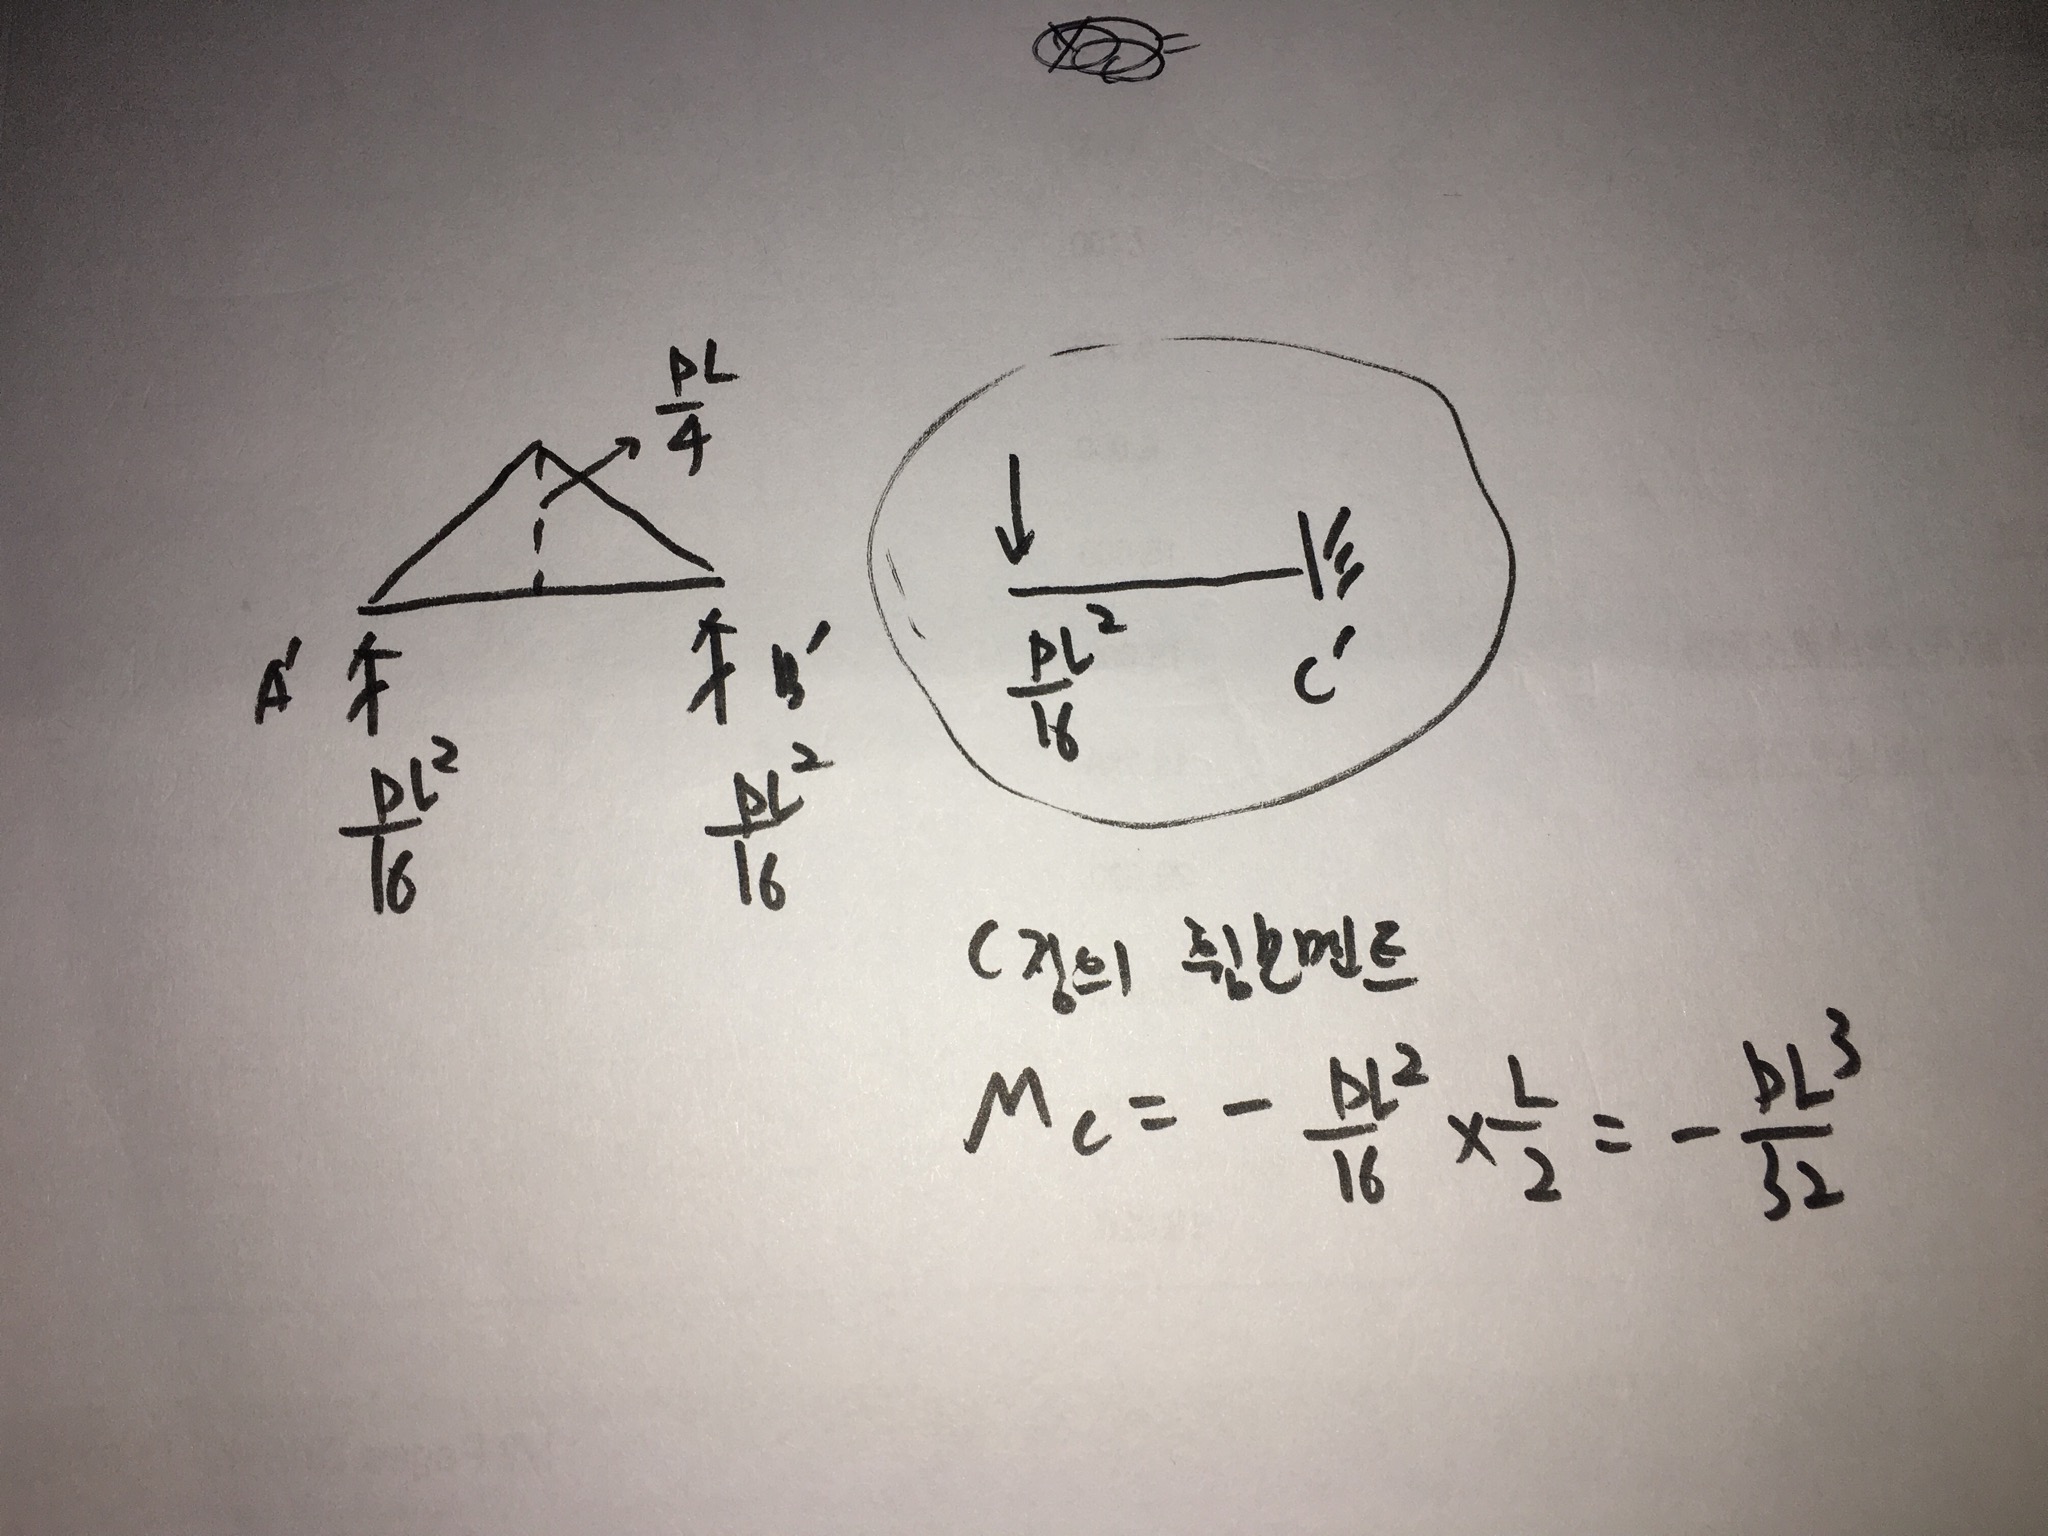 PL/4
A' B'
PL²/16 PL²/16
PL²/16 C'
C점의 휨모멘트
M_C = - PL²/16 × L/2 = - PL³/32